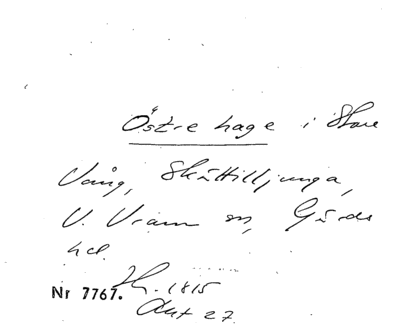 Östre hage i Stora
Vång, Skättilljunga,
V. Vram sn, Gärds
hd.
H. 1815
Nr 7767.
Akt 27